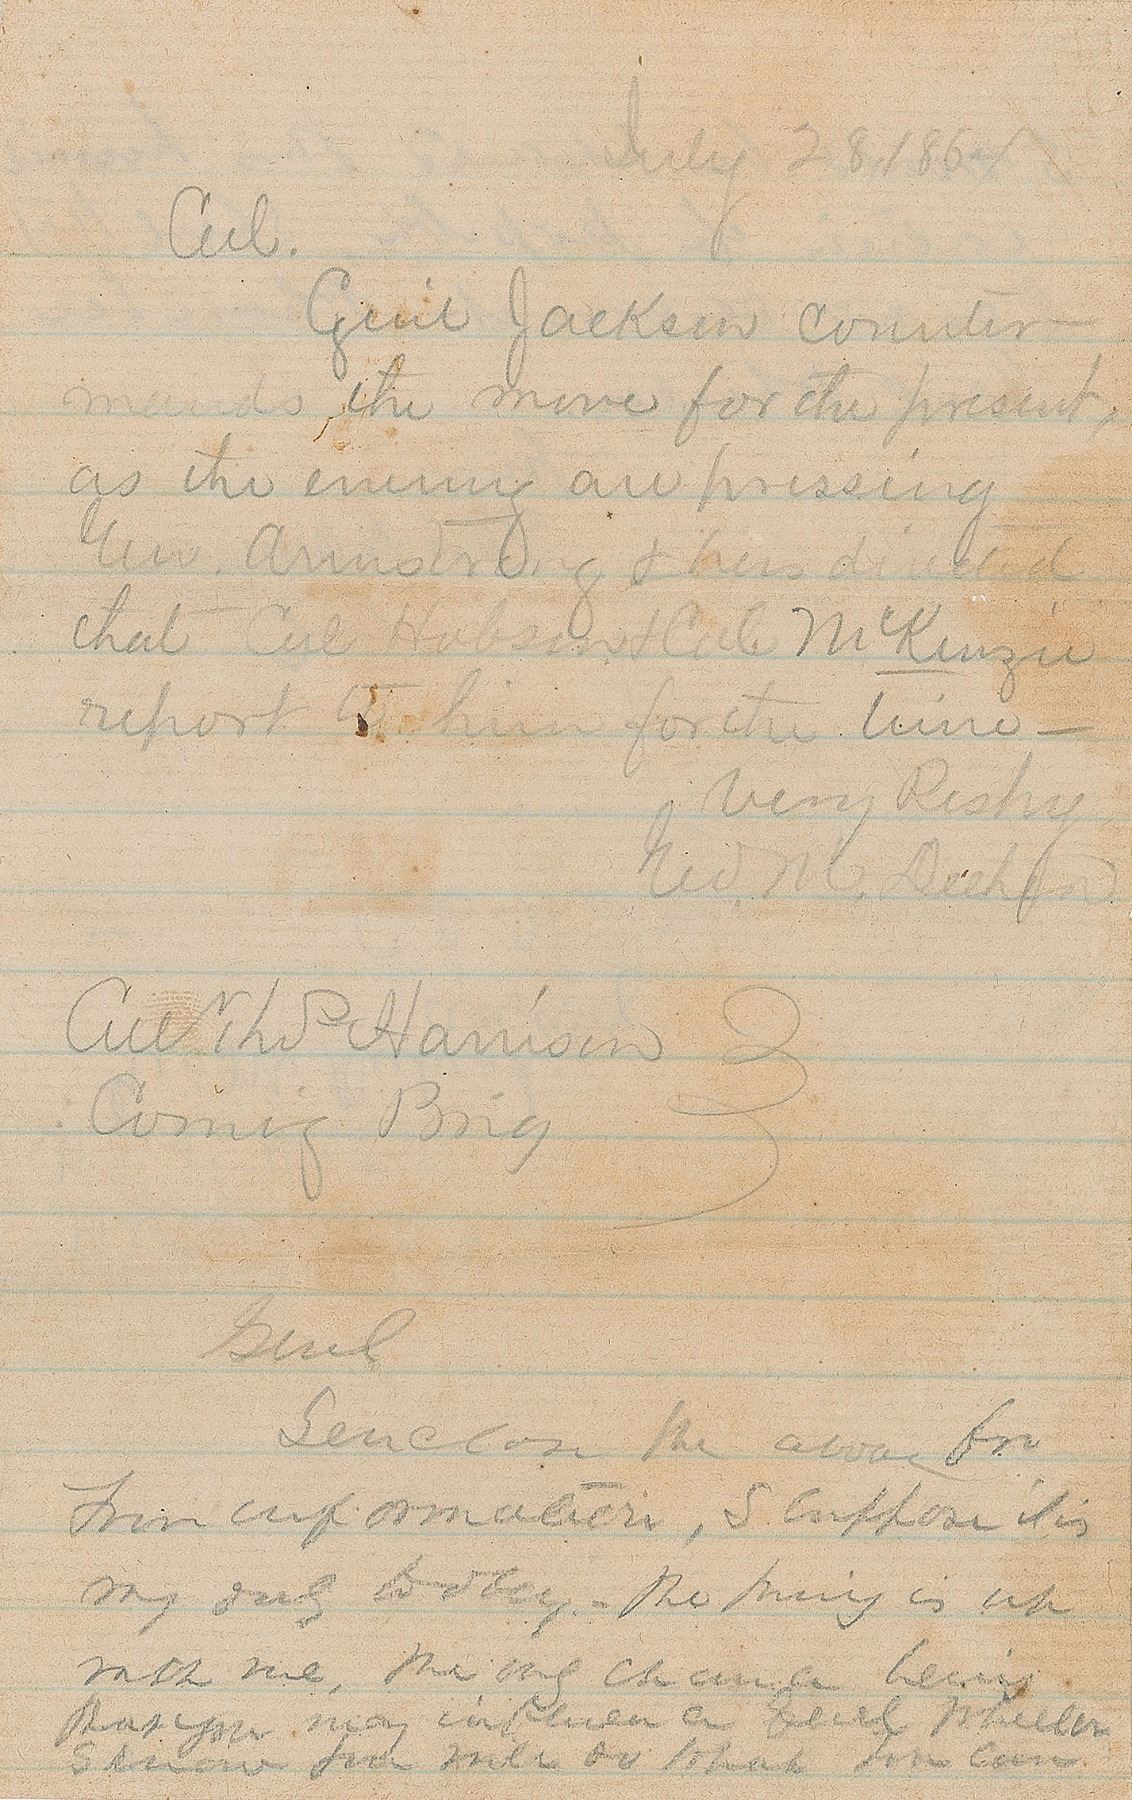 July 28 1864
Col.
Genl Jackson counter-
mands the move for the present,
as the enemy are pressing
Gen. Armstrong & has directed
that Col Hobson & Col McKenzie
report to him for the time —
Very Respy
Geo. M.
Col Thos Harrison
Comdg Brig
Genl
I enclose the above for
your information, I suppose it is
my duty to obey. — The thing is up
with me, the only chance being
that your may influence Genl Wheeler
I know you will do what you can